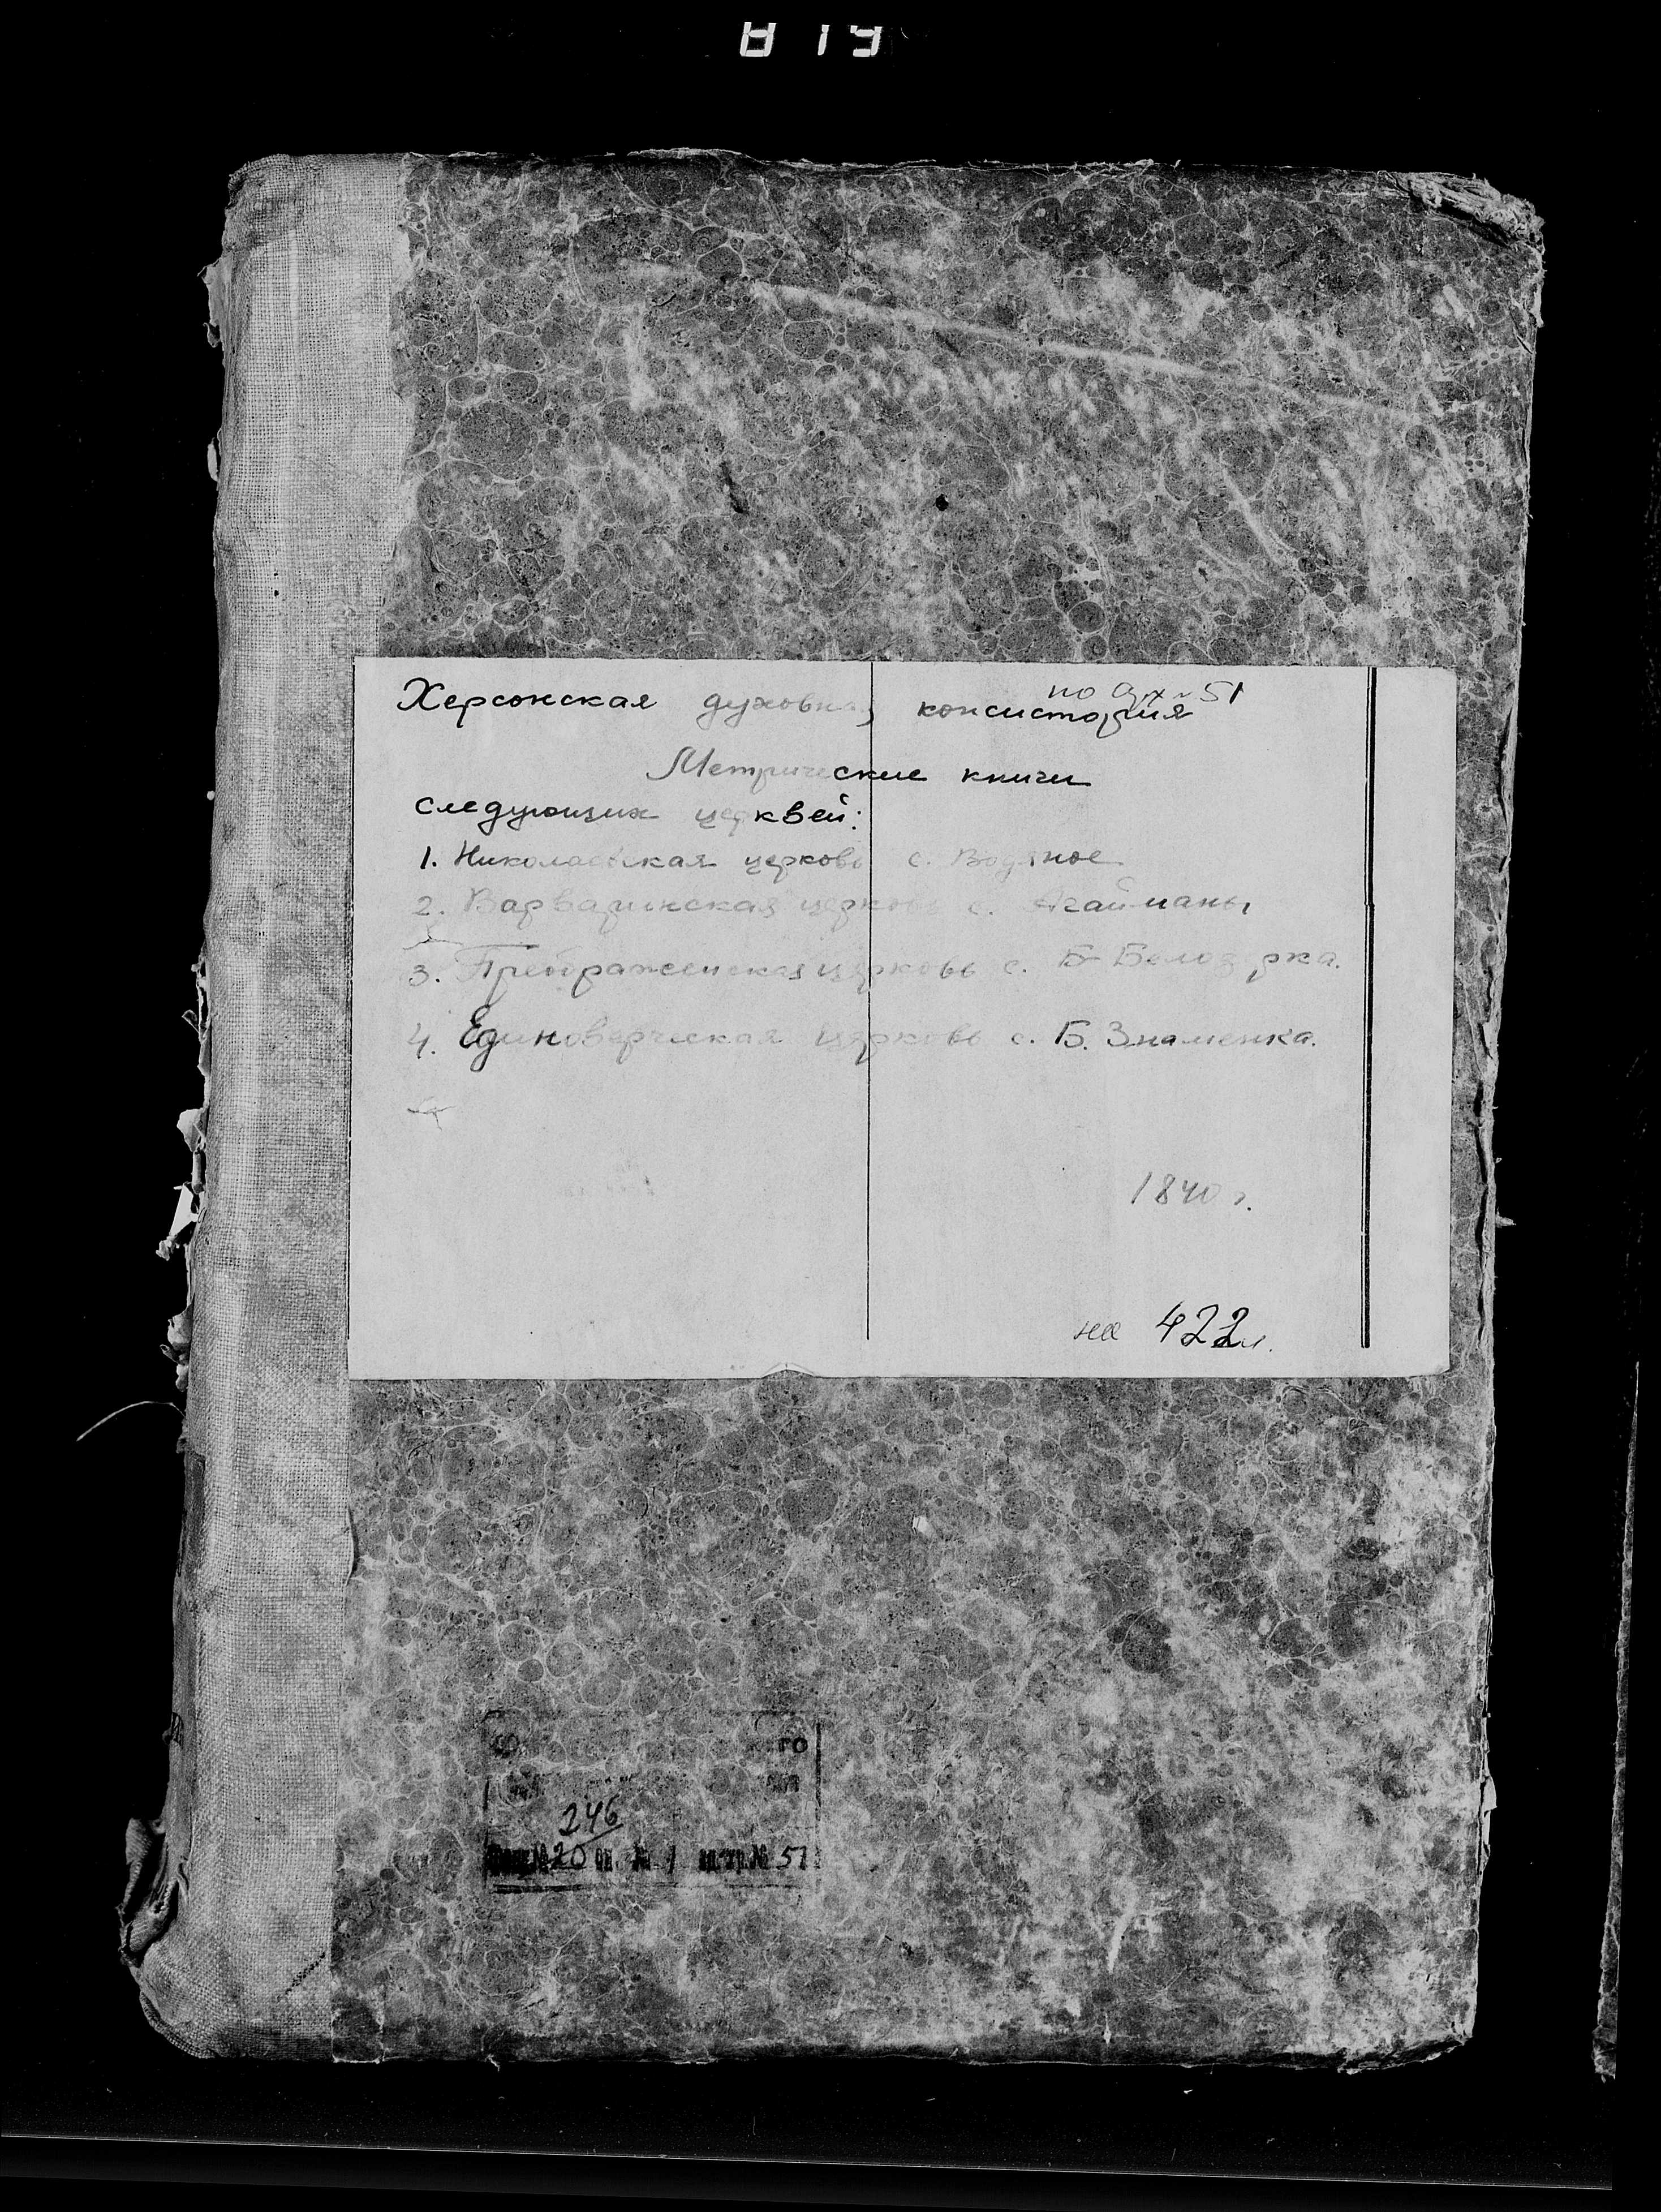 819
по арх 51
Херсонская духовная консистория
Метрические книги
следующих церквей:
1. Николаевская церковь с. Водяное
2. Варваринская церковь с. Агайманы
3. Преображенская церковь с. Б-Белозерка.
4. Единоверческая церковь с. Б. Знаменка.
1840 г.
на 422 л.
го
246
20 оп. № 1 ед. хр. № 51